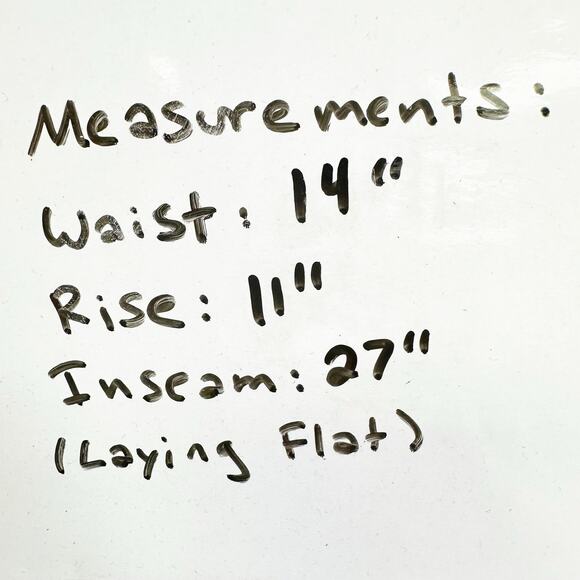 Measurements:
Waist: 14"
Rise: 11"
Inseam: 27"
(Laying Flat)